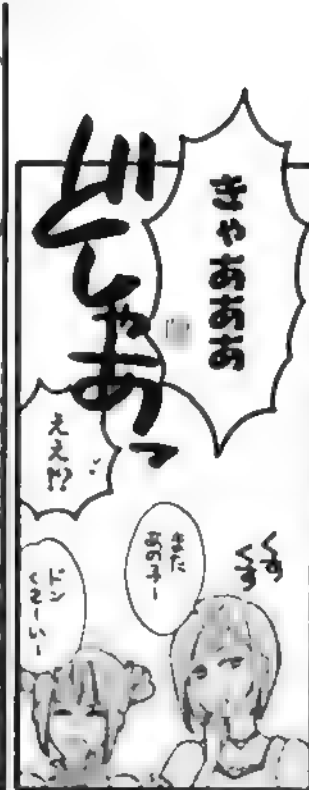 きゃあああ
どしゃあっ
ええ!?
くすくす
また
あの子ー
ドン
くさーいー